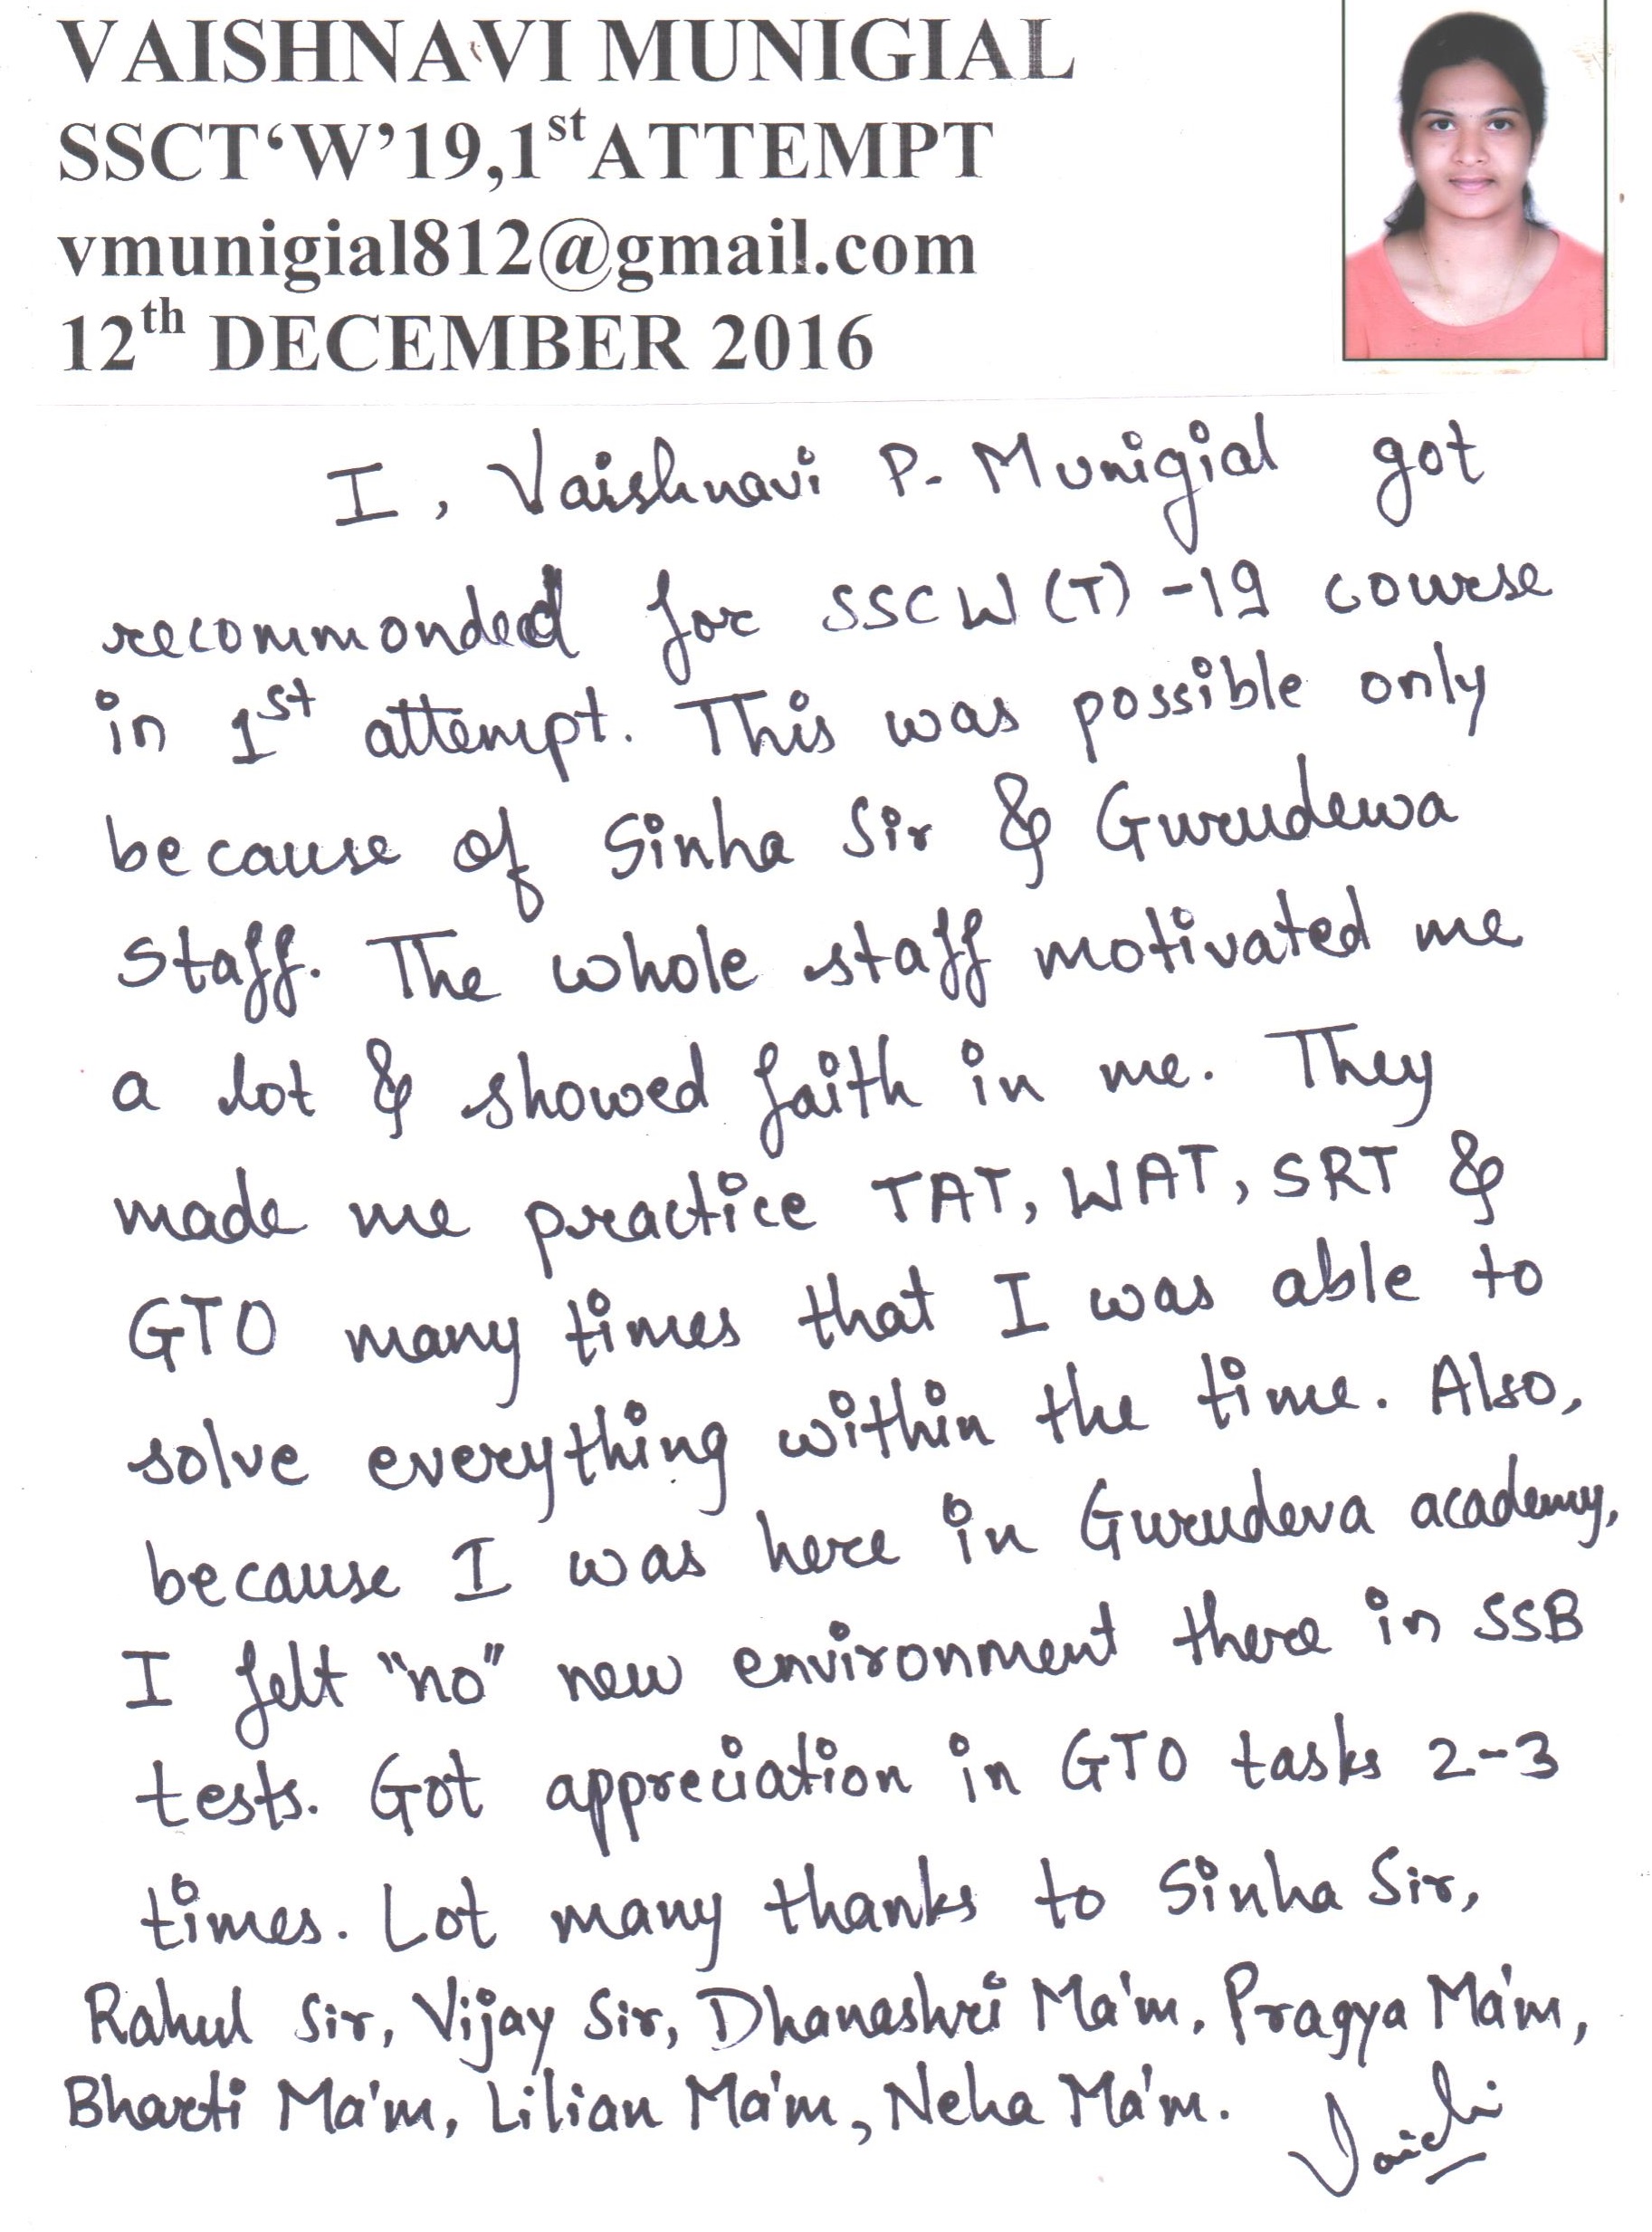 VAISHNAVI MUNIGIAL
SSCT‘W’19,1st ATTEMPT
vmunigial812@gmail.com
12th DECEMBER 2016
I, Vaishnavi P. Munigial got
recommonded for SSCW(T)-19 course
in 1st attempt. This was possible only
because of Sinha Sir & Gurudewa
staff. The whole staff motivated me
a lot & showed faith in me. They
made me practice TAT, WAT, SRT &
GTO many times that I was able to
solve everything within the time. Also,
because I was here in Gurudeva academy,
I felt "no" new environment there in SSB
tests. Got appreciation in GTO tasks 2-3
times. Lot many thanks to Sinha Sir,
Rahul Sir, Vijay Sir, Dhanashri Ma'm, Pragya Ma'm,
Bharti Ma'm, Lilian Ma'm, Neha Ma'm.